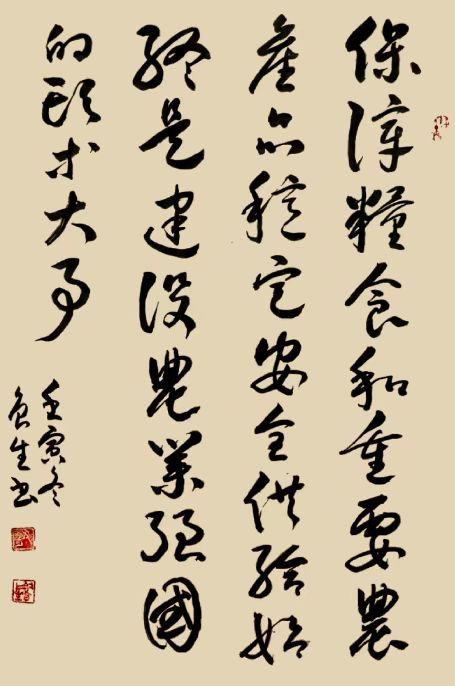 保障糧食和重要農
產品穩定安全供給始
終是建設農業強國
的頭等大事
壬寅冬
良生书